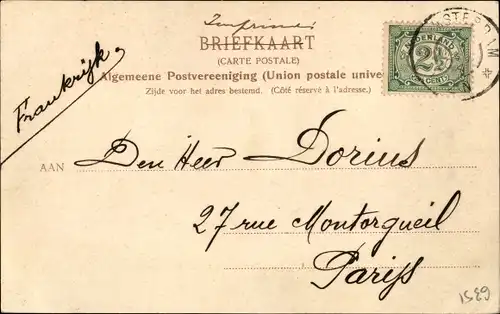 Imprimé
BRIEFKAART
(CARTE POSTALE)
Algemeene Postvereeniging (Union postale unive
Zijde voor het adres bestemd. (Côté réservé à l'adresse.)
NEDERLAND
2½
CENT
STERDAM
Frankrijk.
AAN Den Heer Dorius
27 rue Montorgueil
Parijs
1539